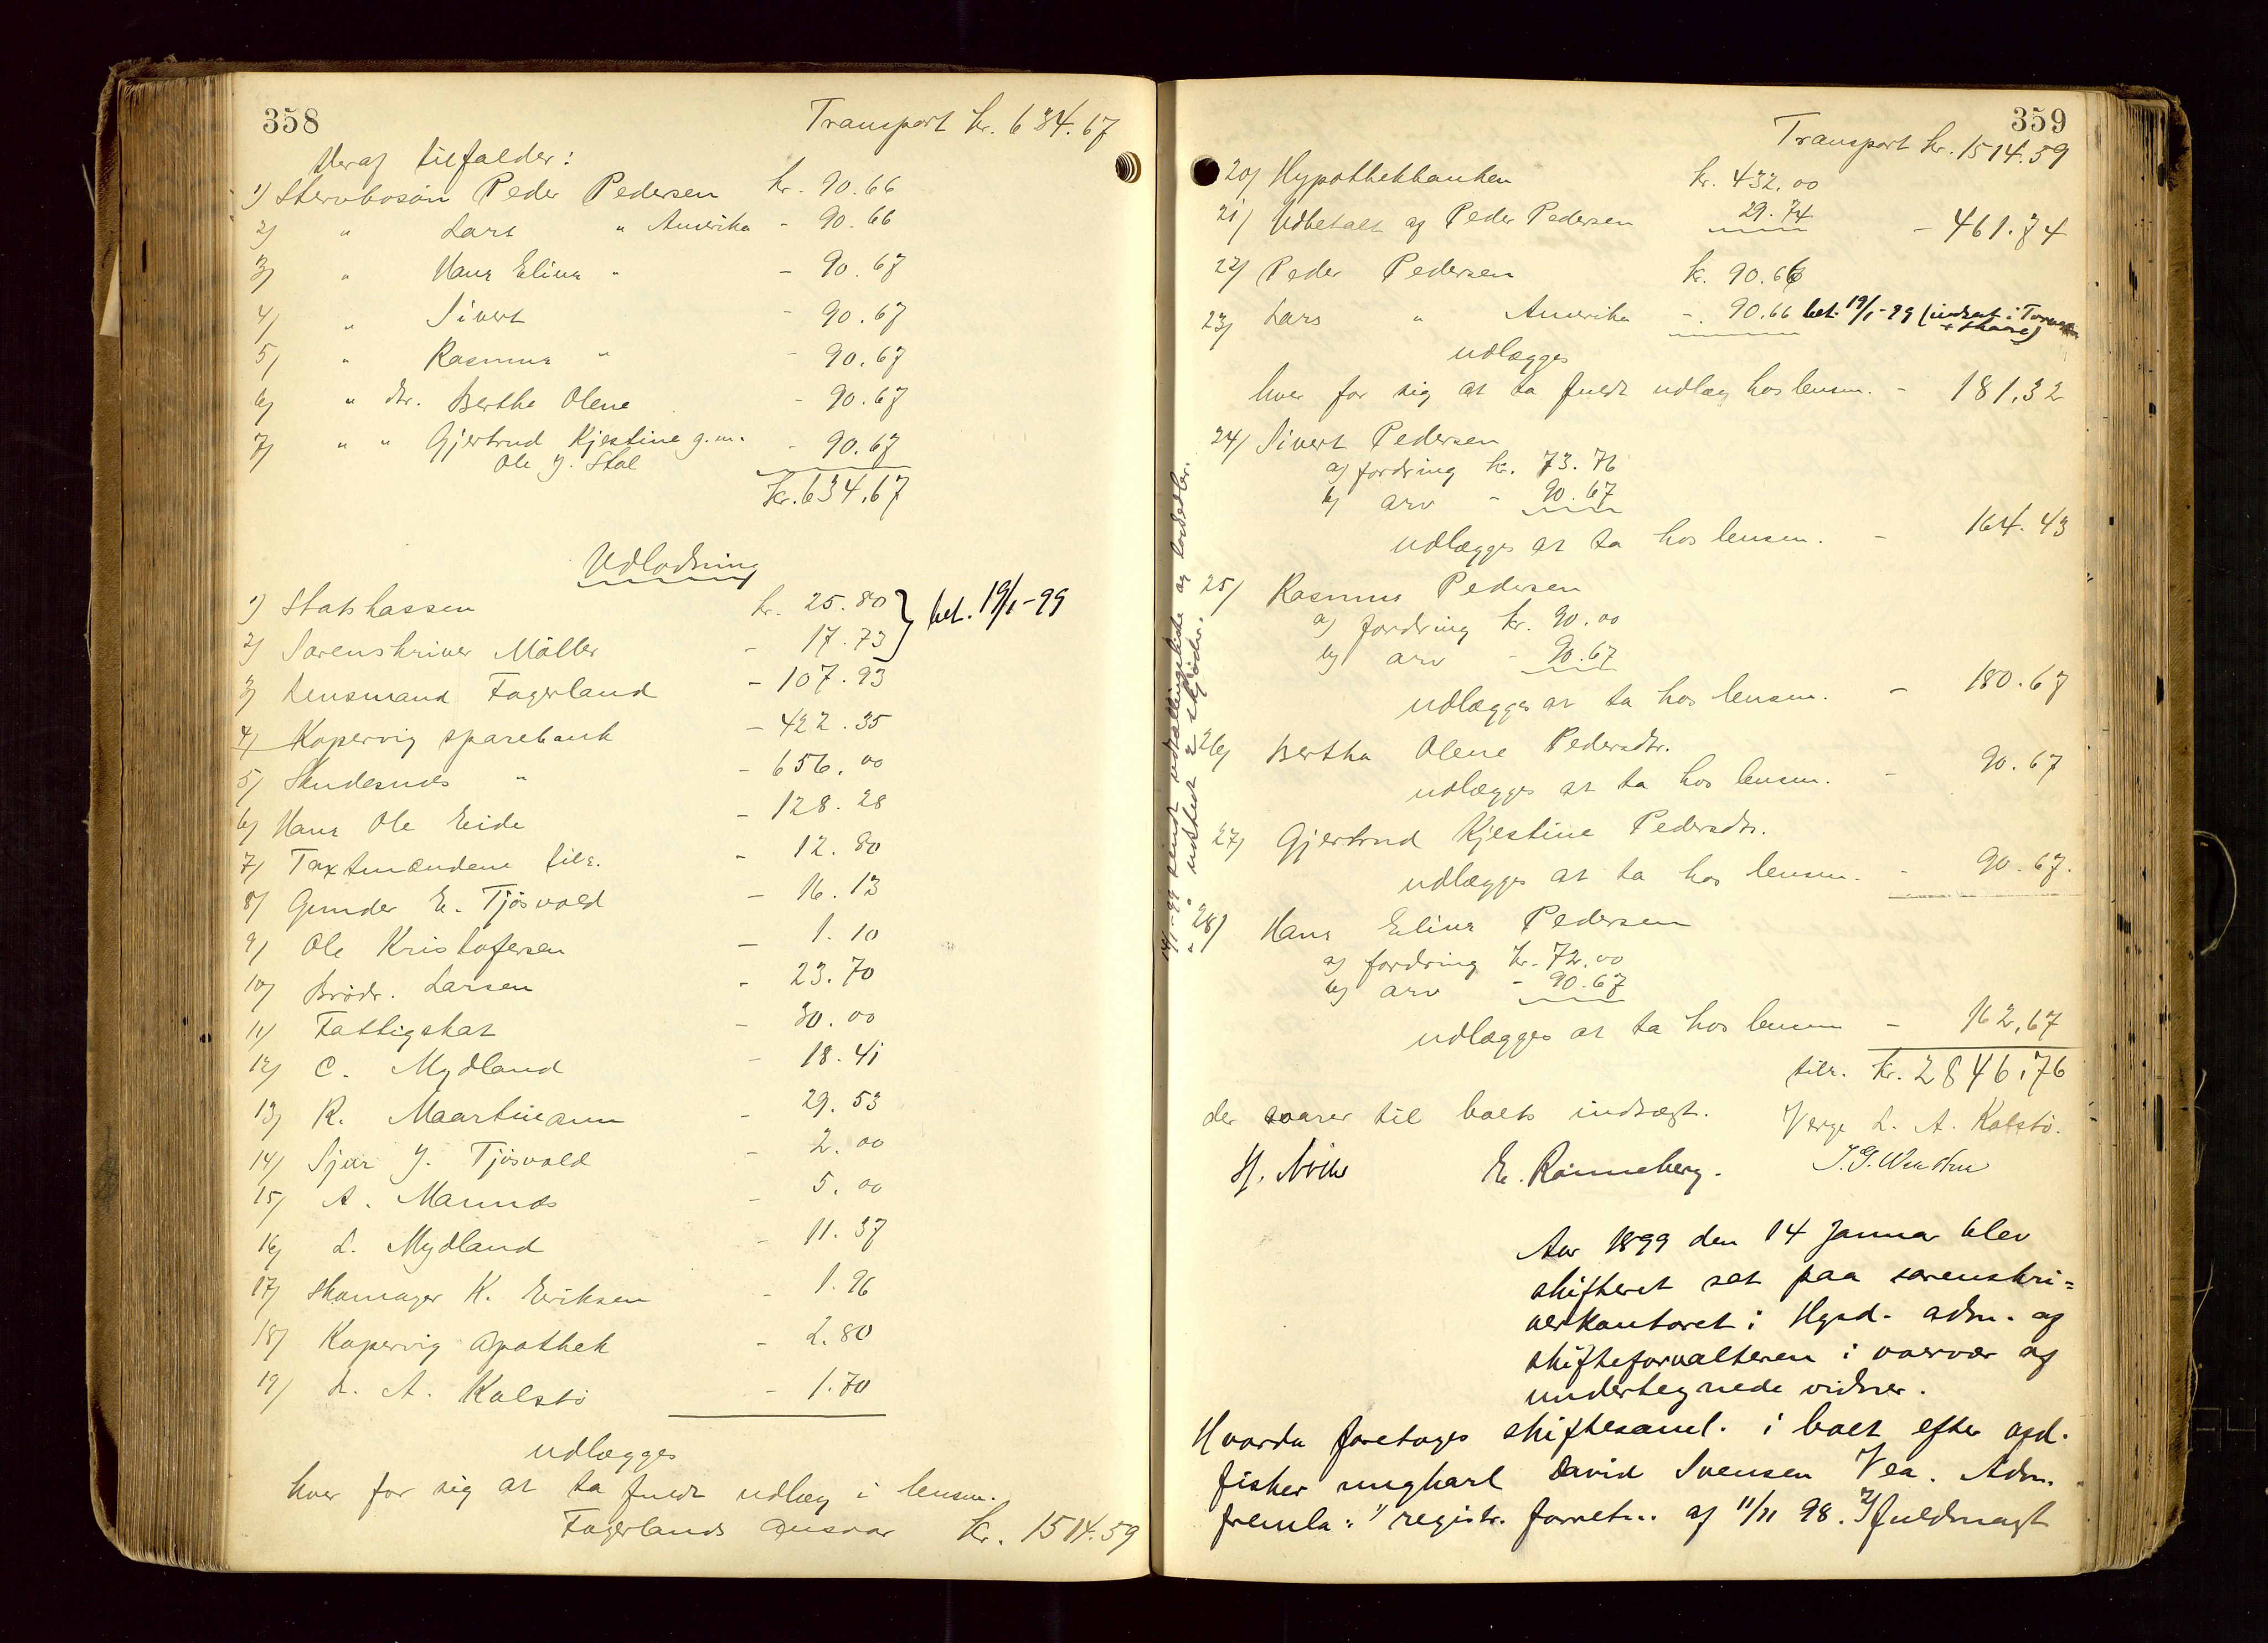 358
Transport kr. 634.67
Heraf tilfalder:
1) Stervbosøn Peder Pedersen kr. 90.66
2) " Lars " Amerika - 90.66
3) " Hans Elias " - 90.67
4) " Sivert - 90.67
5) " Rasmus " - 90.67
6) " dtr. Berthe Olene - 90.67
7) " " Gjertrud Kjestine g.m. - 90.67
Ole J. Stol
kr. 634.67
Udlodning
1) Statskassen kr. 25.80 } bet. 19/1-99
2) Sorenskriver Møller - 17.73
3) Lensmand Fagerland - 107.93
4) Kopervig sparebank - 422.35
5) Skudesnes " - 656.00
6) Hans Ole Eide - 128.28
7) Taxtmændene tils. - 12.80
8) Gunder E. Tjøsvold - 16.13
9) Ole Kristofersen - 1.10
10) Brødr. Larsen - 23.70
11) Fattigskat - 30.00
12) C. Mydland - 18.41
13) R. Maartmann - 29.53
14) Sjur J. Tjøsvold - 2.00
15) A. Mannes - 5.00
16) L. Mydland - 11.37
17) Skomager K. Eriksen - 1.96
18) Kopervig Apothek - 2.80
19) L. A. Kalstø - 1.70
udlægges
hver for sig at ta fuldt udlæg i lensm.
Fagerlands ansvar kr. 1514.59
359
Transport kr. 1514.59
20) Hypothekbanken kr. 432.00
21) Udbetalt af Peder Pedersen 29.74 - 461.74
22) Peder Pedersen kr. 90.66
23) Lars " Amerika - 90.66 bet. 19/1-99 (indsat i
+ Skaare)
udlægges
hver for sig at ta fuldt udlæg hos lensm. - 181.32
24) Sivert Pedersen
a) fordring kr. 73.76
b) arv - 90.67
udlægges at ta hos lensm. - 164.43
25) Rasmus Pedersen
a) fordring kr. 90.00
b) arv - 90.67
udlægges at ta hos lensm. - 180.67
26) Bertha Olene Pedersdtr.
udlægges at ta hos lensm. - 90.67
27) Gjertrud Kjestine Pedersdtr.
udlægges at ta hos lensm. - 90.67.
28) Hans Elias Pedersen
a) fordring kr. 72.00
b) arv - 90.67
udlægges at ta hos lensm - 162.67
tils. kr. 2846.76
der svarer til boets indtægt. Verge L. A. Kalstø.
E. Rønneberg.
19/1-99 sendt udtællingsliste og lodsedler.
" " udstedt 2 skjøder.
Aar 1899 den 14 Januar blev
skifteret sat paa sorenskri=
verkontoret i Hgsd. adm. af
skifteforvalteren i overvær af
undertegnede vidner.
Hvorda foretoges skiftesaml. i boet efter afd.
fisker ungkarl David Svensen Vea. Adm.
fremla: 1) registr. forretn. af 11/11 98. 2) fuldmagt